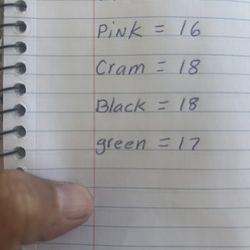 Pink = 16
Cram = 18
Black = 18
green = 17